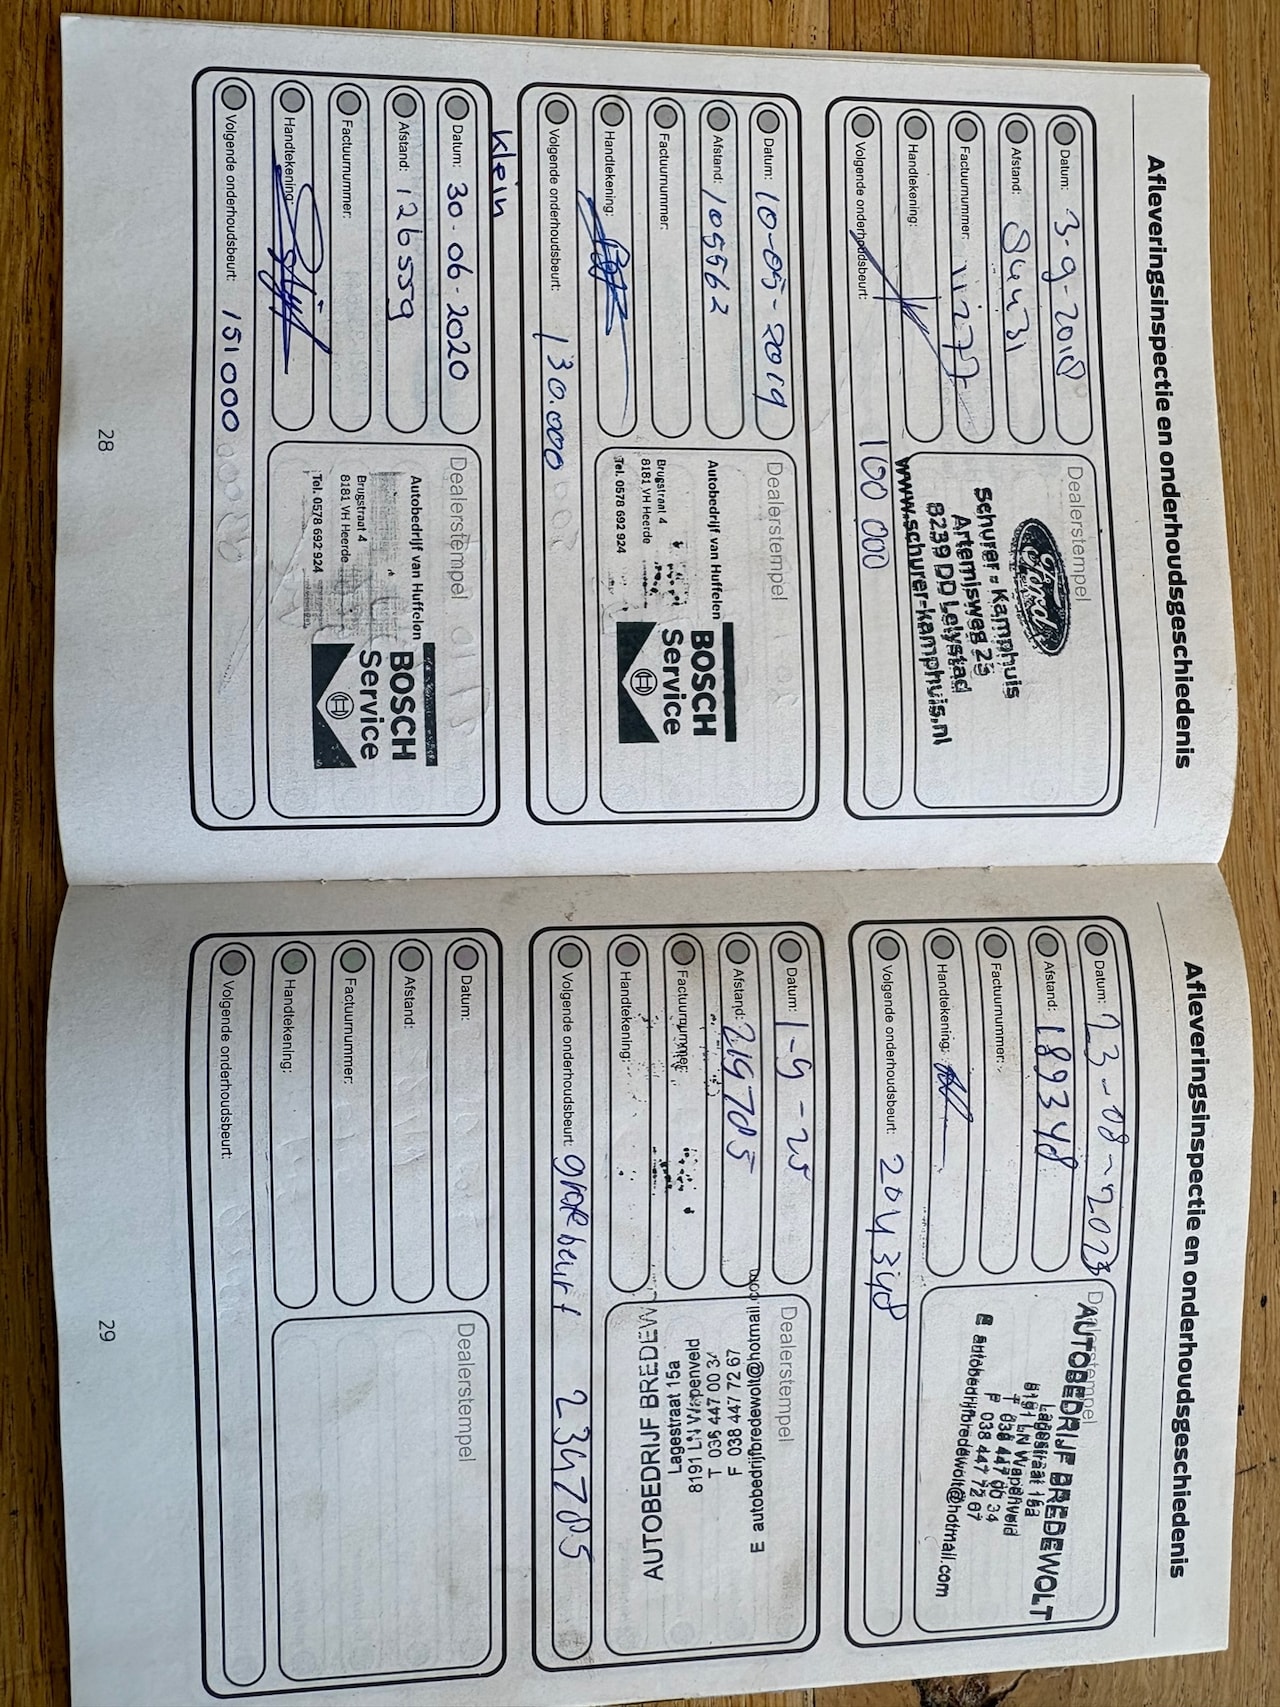 Afleveringsinspectie en onderhoudsgeschiedenis
Datum: 3-9-2018
Afstand: 84431
Factuurnummer: 11277
Handtekening:
Volgende onderhoudsbeurt: 100 000
Dealerstempel
Ford
Schurer - Kamphuis
Artemisweg 23
8239 DD Lelystad
www.schurer-kamphuis.nl
Datum: 10-05-2019
Afstand: 105562
Factuurnummer:
Handtekening:
Volgende onderhoudsbeurt: 130.000
Dealerstempel
Autobedrijf van Huffelen
Brugstraat 4
8181 VH Heerde
Tel. 0578 692 924
BOSCH
Service
Klein
Datum: 30-06-2020
Afstand: 126559
Factuurnummer:
Handtekening:
Volgende onderhoudsbeurt: 151000
Dealerstempel
Autobedrijf van Huffelen
Brugstraat 4
8181 VH Heerde
Tel. 0578 692 924
BOSCH
Service
28
Afleveringsinspectie en onderhoudsgeschiedenis
Datum: 23-08-2023
Afstand: 189348
Factuurnummer:
Handtekening:
Volgende onderhoudsbeurt: 204348
Dealerstempel
AUTOBEDRIJF BREDEWOLT
Lagestraat 15a
8191 LN Wapenveld
T 038 447 00 34
F 038 447 72 67
E autobedrijfbredewolt@hotmail.com
Datum: 1-9-25
Afstand: 219785
Factuurnummer:
Handtekening:
Volgende onderhoudsbeurt: grote beurt 234785
Dealerstempel
AUTOBEDRIJF BREDEW
Lagestraat 15a
8191 LN Wapenveld
T 038 447 00 34
F 038 447 72 67
E autobedrijfbredewolt@hotmail.com
Datum:
Afstand:
Factuurnummer:
Handtekening:
Volgende onderhoudsbeurt:
Dealerstempel
29